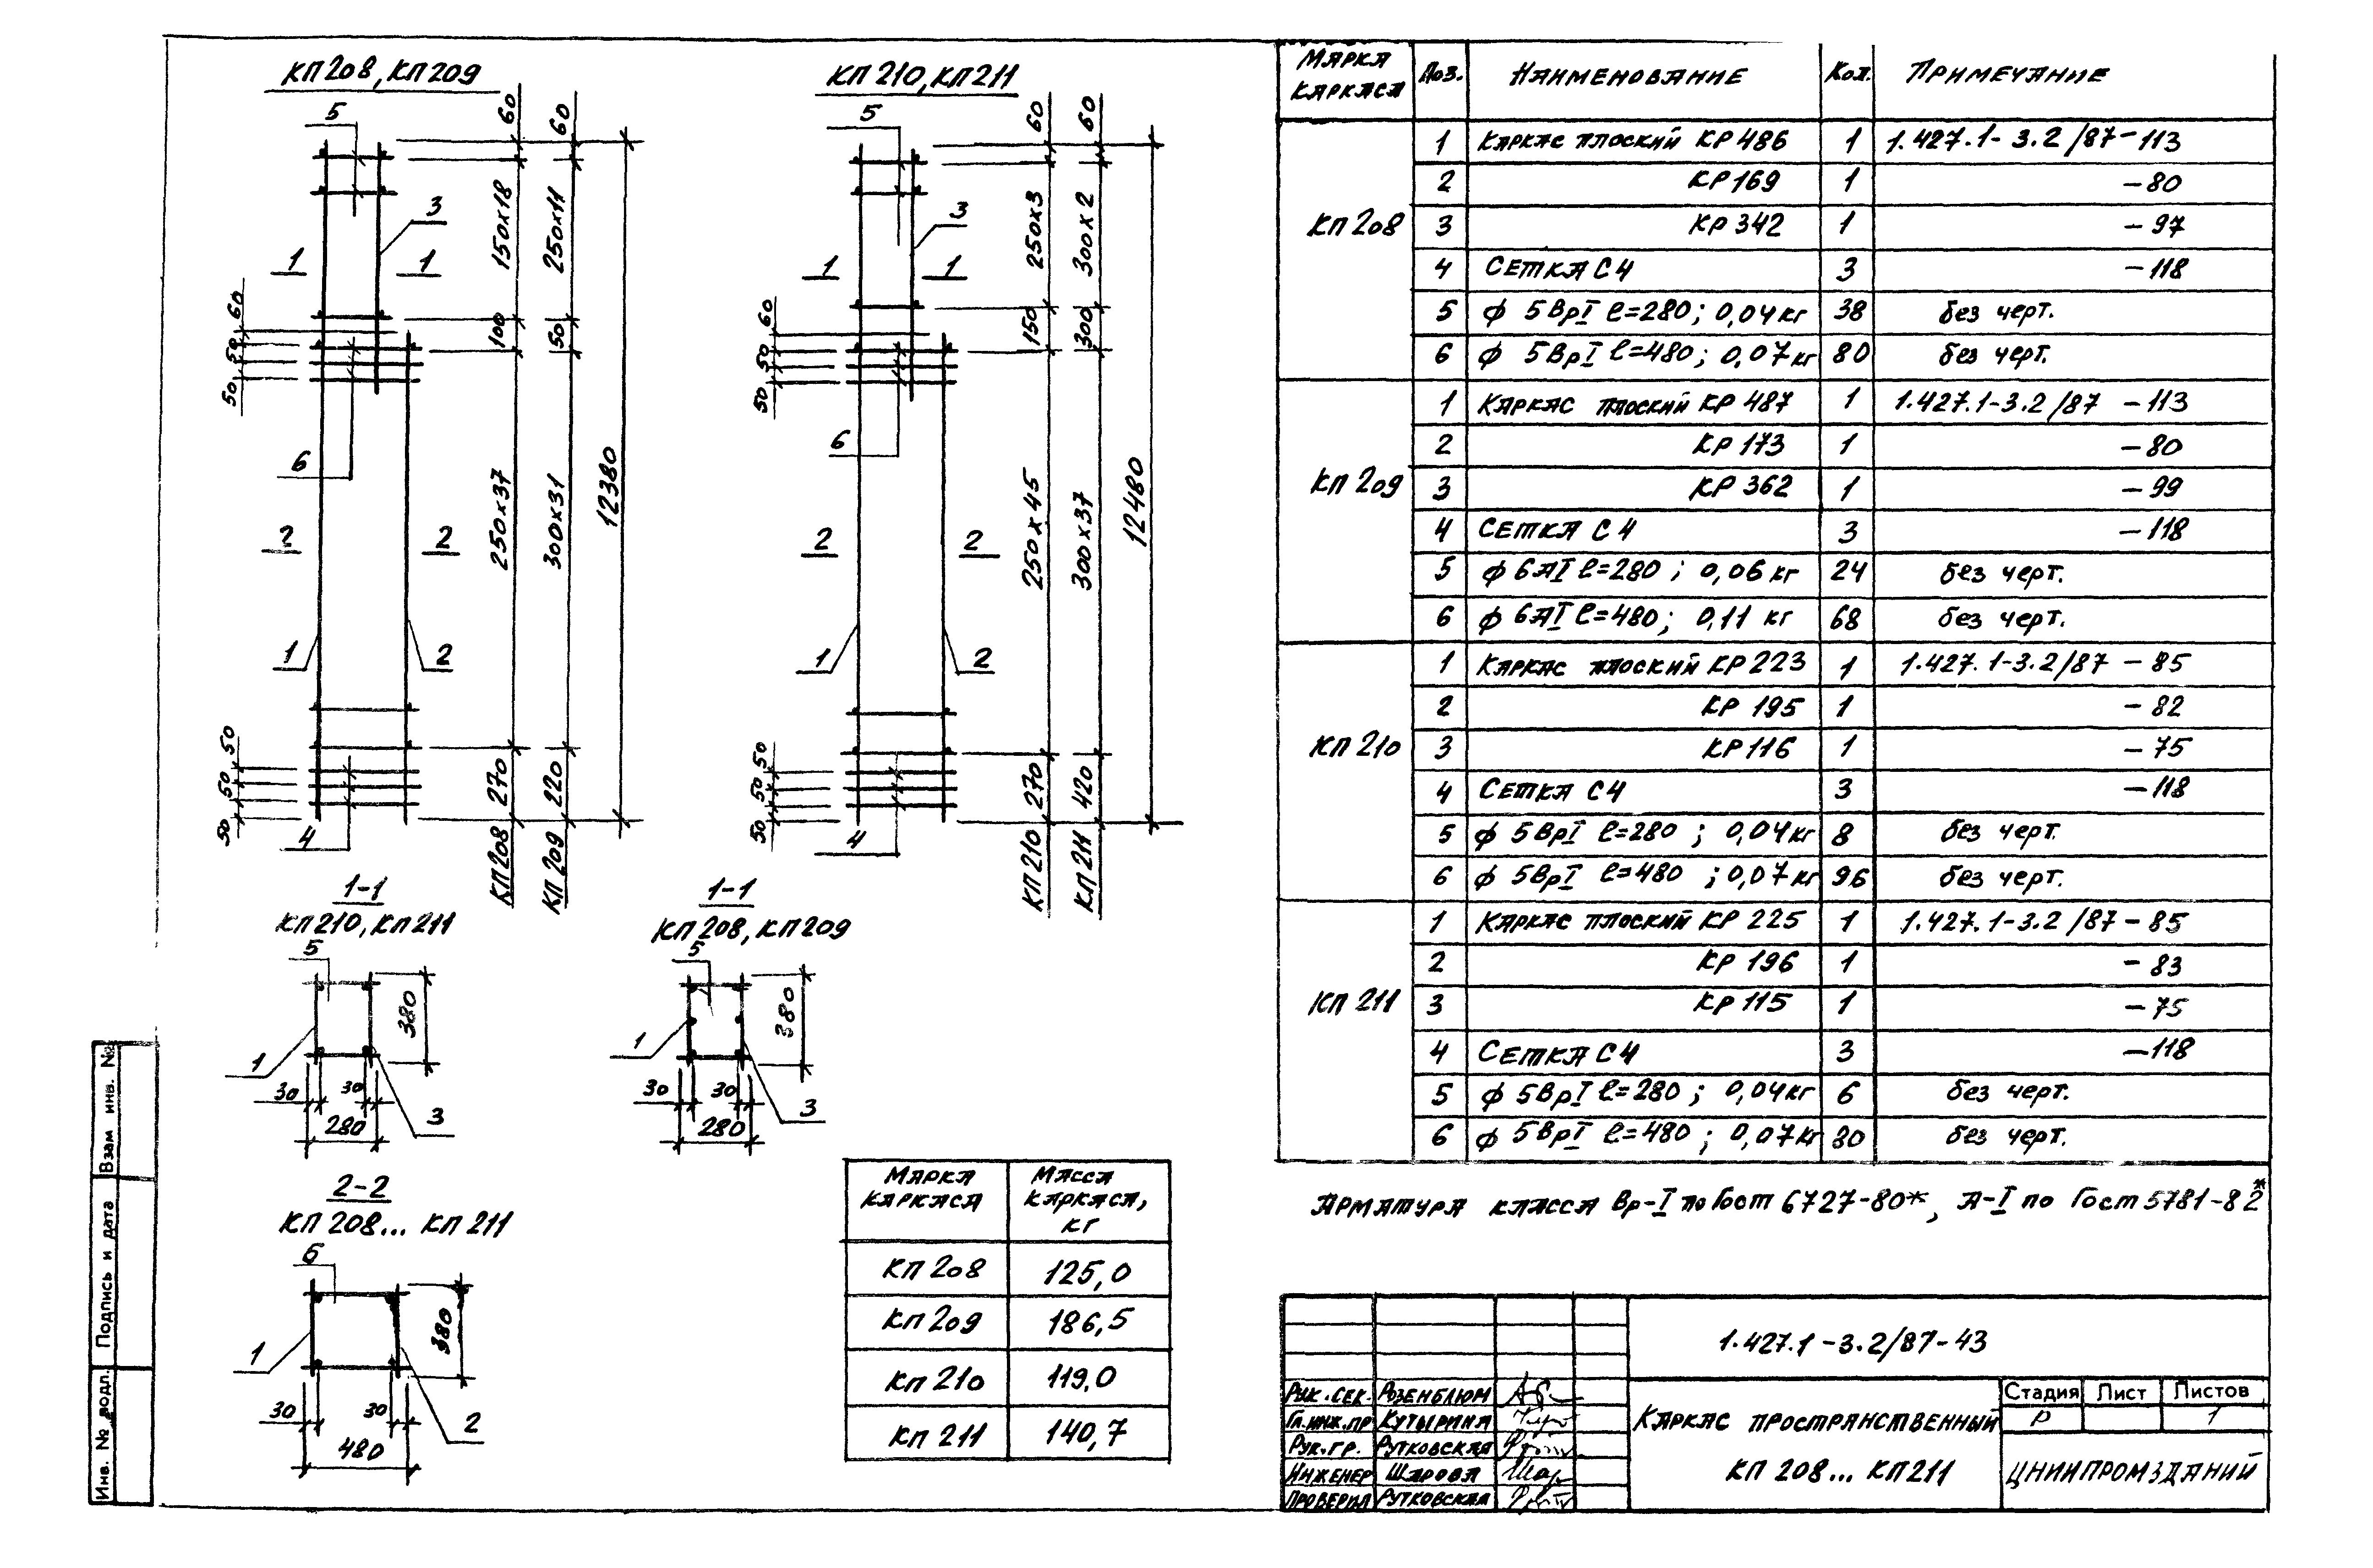 КП 208, КП 209
5
3
1
1
60
60
150х18
250х11
60
50
50
100
50
6
250х37
300х31
12380
2
2
1
2
50
50
50
270
220
4
КП 208
КП 209
КП 210, КП 211
5
3
1
1
60
60
250х3
300х2
60
50
50
150
300
6
250х45
300х37
12480
2
2
1
2
50
50
50
270
420
4
КП 210
КП 211
1-1
КП 210, КП 211
5
380
1
30
30
3
280
1-1
КП 208, КП 209
5
380
1
30
30
3
280
2-2
КП 208... КП 211
6
380
1
30
30
2
480
Марка каркаса
Масса каркаса, кг
КП 208 125,0
КП 209 186,5
КП 210 119,0
КП 211 140,7
Марка каркаса Поз. Наименование Кол. Примечание
КП 208
1 Каркас плоский КР 486 1 1.427.1-3.2/87-113
2 КР 169 1 -80
3 КР 342 1 -97
4 Сетка С4 3 -118
5 ф 5ВрI l=280; 0,04кг 38 без черт.
6 ф 5ВрI l=480; 0,07кг 80 без черт.
КП 209
1 Каркас плоский КР 487 1 1.427.1-3.2/87 -113
2 КР 173 1 -80
3 КР 362 1 -99
4 Сетка С4 3 -118
5 ф 6АI l=280; 0,06кг 24 без черт.
6 ф 6АI l=480; 0,11 кг 68 без черт.
КП 210
1 Каркас плоский КР 223 1 1.427.1-3.2/87 - 85
2 КР 195 1 - 82
3 КР 116 1 - 75
4 Сетка С4 3 -118
5 ф 5ВрI l=280; 0,04кг 8 без черт.
6 ф 5ВрI l=480; 0,07кг 96 без черт.
КП 211
1 Каркас плоский КР 225 1 1.427.1-3.2/87 - 85
2 КР 196 1 - 83
3 КР 115 1 -75
4 Сетка С4 3 -118
5 ф 5ВрI l=280; 0,04кг 6 без черт.
6 ф 5ВрI l=480; 0,07кг 80 без черт.
Арматура класса Вр-I по Гост 6727-80*, А-I по Гост 5781-82*
1.427.1-3.2/87-43
Рук. сек. Розенблюм
Гл. инж. пр Кутырина
Рук. гр. Рутковская
Инженер Шарова
Проверил Рутковская
Каркас пространственный
КП 208... КП 211
Стадия Лист Листов
Р 1
ЦНИИПРОМЗДАНИЙ
Взам инв. №
Подпись и дата
Инв. № подл.